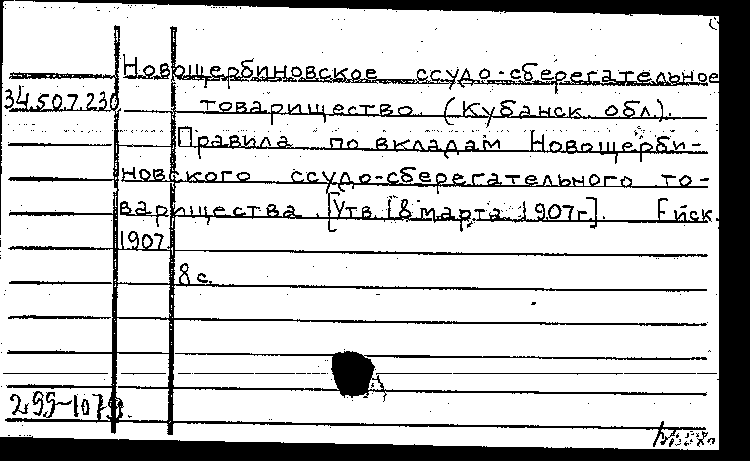 Новощербиновское ссудо-сберегательное
34.507.230 товарищество. (Кубанск. обл.).
Правила по вкладам Новощерби-
новского ссудо-сберегательного то-
варищества. [Утв. 18 марта 1907г]. Ейск.
1907
8 с.
299-1079.